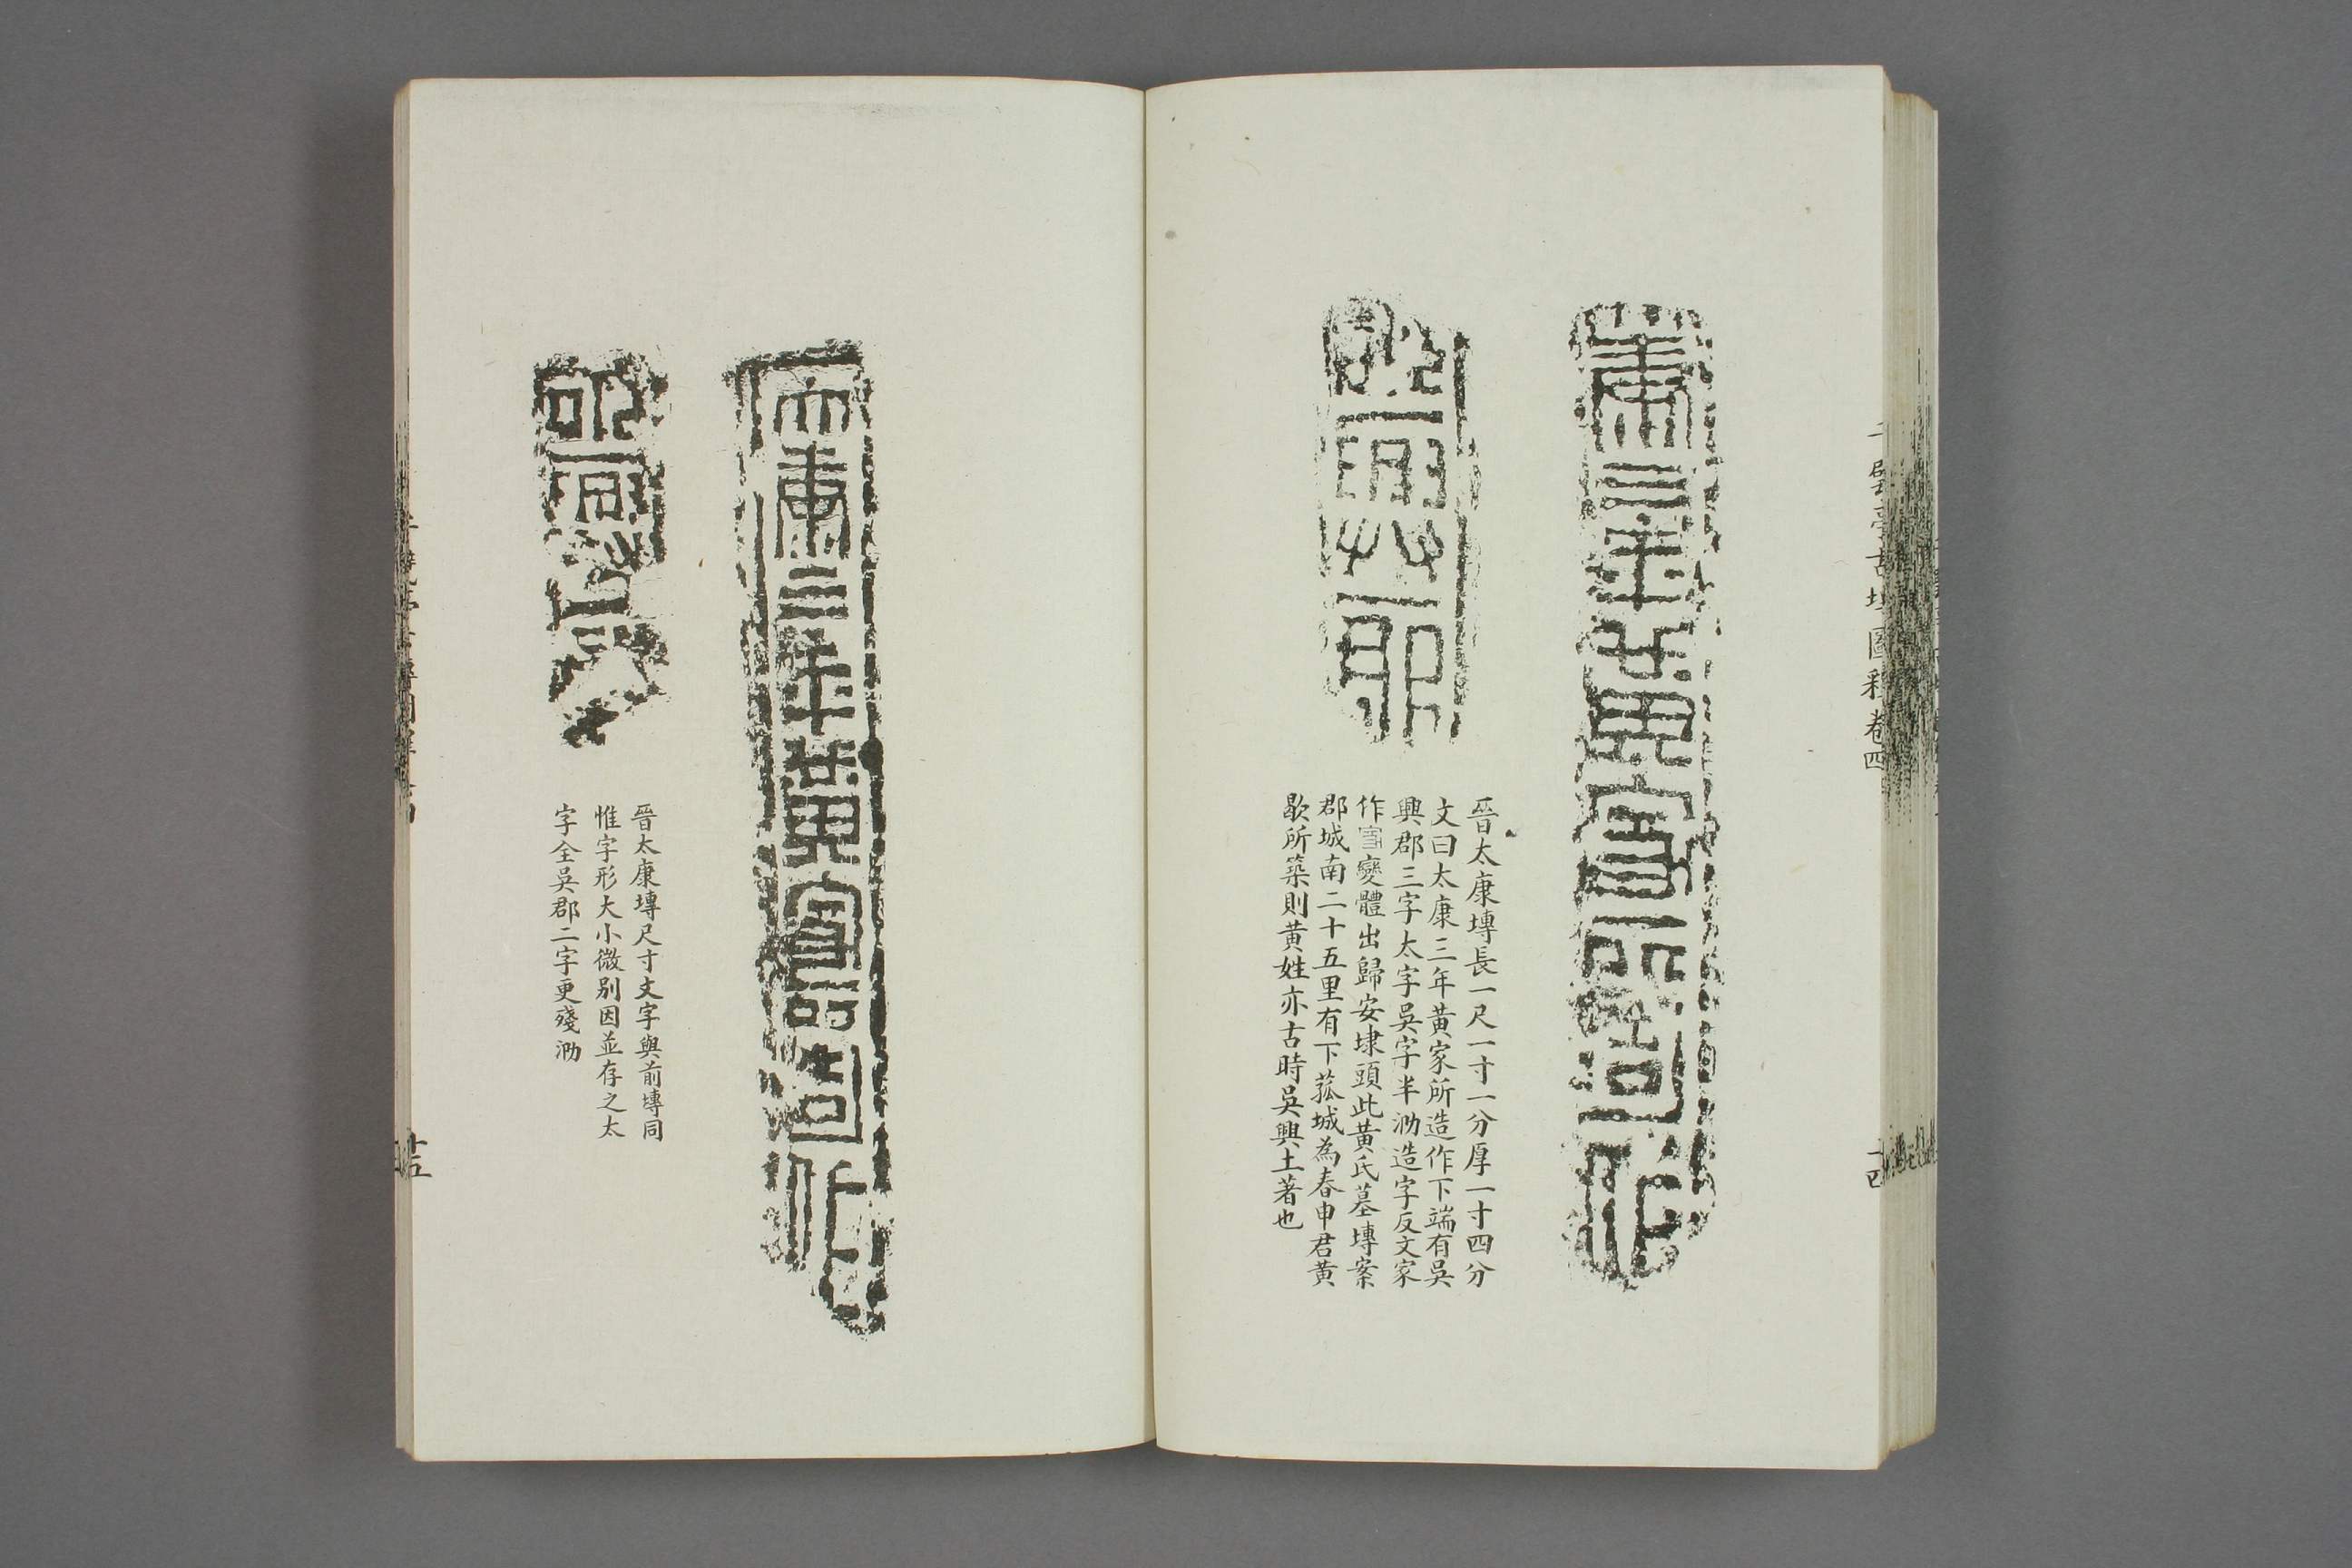 千甓亭古塼圖釋卷四
康三年黃家所造作
興郡
晉太康塼長一尺一寸一分厚一寸四分
文曰太康三年黃家所造作下端有吳
興郡三字太字吳字半泐造字反文家
作變體出歸安埭頭此黃氏墓塼案
郡城南二十五里有下菰城為春申君黃
歇所築則黃姓亦古時吳興土著也
太康三年黃家所造作
吳興
晉太康塼尺寸文字與前塼同
惟字形大小微別因並存之太
字全吳郡二字更殘泐
十五